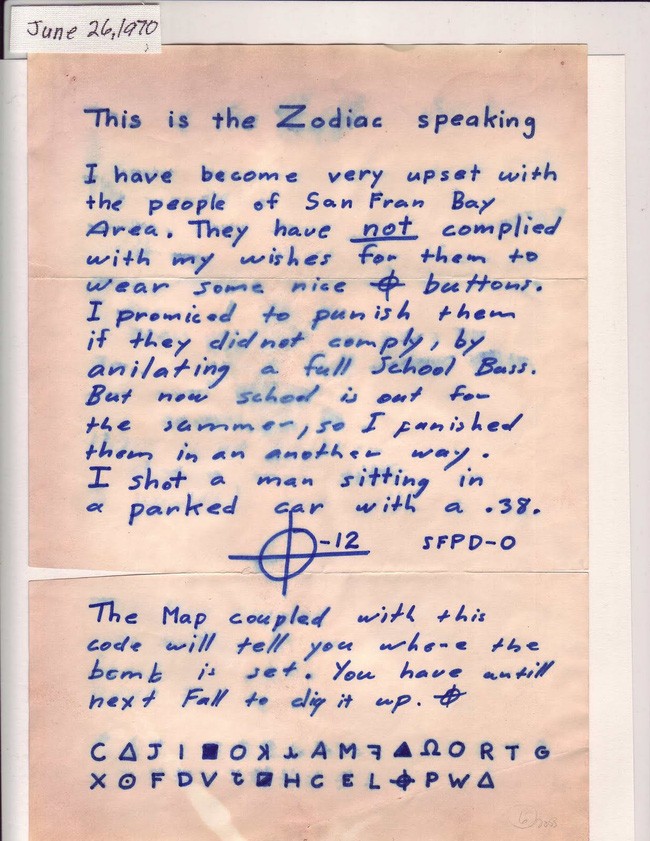 June 26, 1970
This is the Zodiac speaking
I have become very upset with
the people of San Fran Bay
Area. They have not complied
with my wishes for them to
wear some nice ⌖ buttons.
I promiced to punish them
if they did not comply, by
anilating a full School Buss.
But now school is out for
the summer, so I punished
them in an another way.
I shot a man sitting in
a parked car with a .38.
⌖-12 SFPD-0
The Map coupled with this
code will tell you where the
bomb is set. You have untill
next Fall to dig it up. ⌖
C Δ J I ■ O ꓘ ⅄ A M ꟻ ▲ Ω O R T G
X ⊙ F D V ㄟ ◪ H C E L ⌖ P W Δ